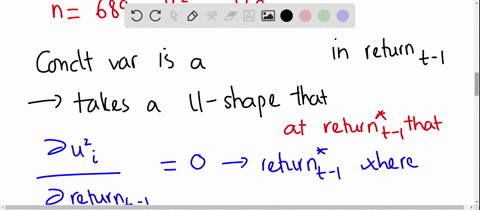 n = 689
Condt var is a in return t-1
→ takes a U-shape that
at return*t-1 that
∂u²i / ∂ return t-1 = 0 → return*t-1 where